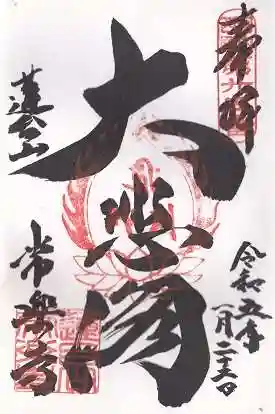 奉拝
大悲閣
蓮台山
常楽寺
令和五年
一月二十三日